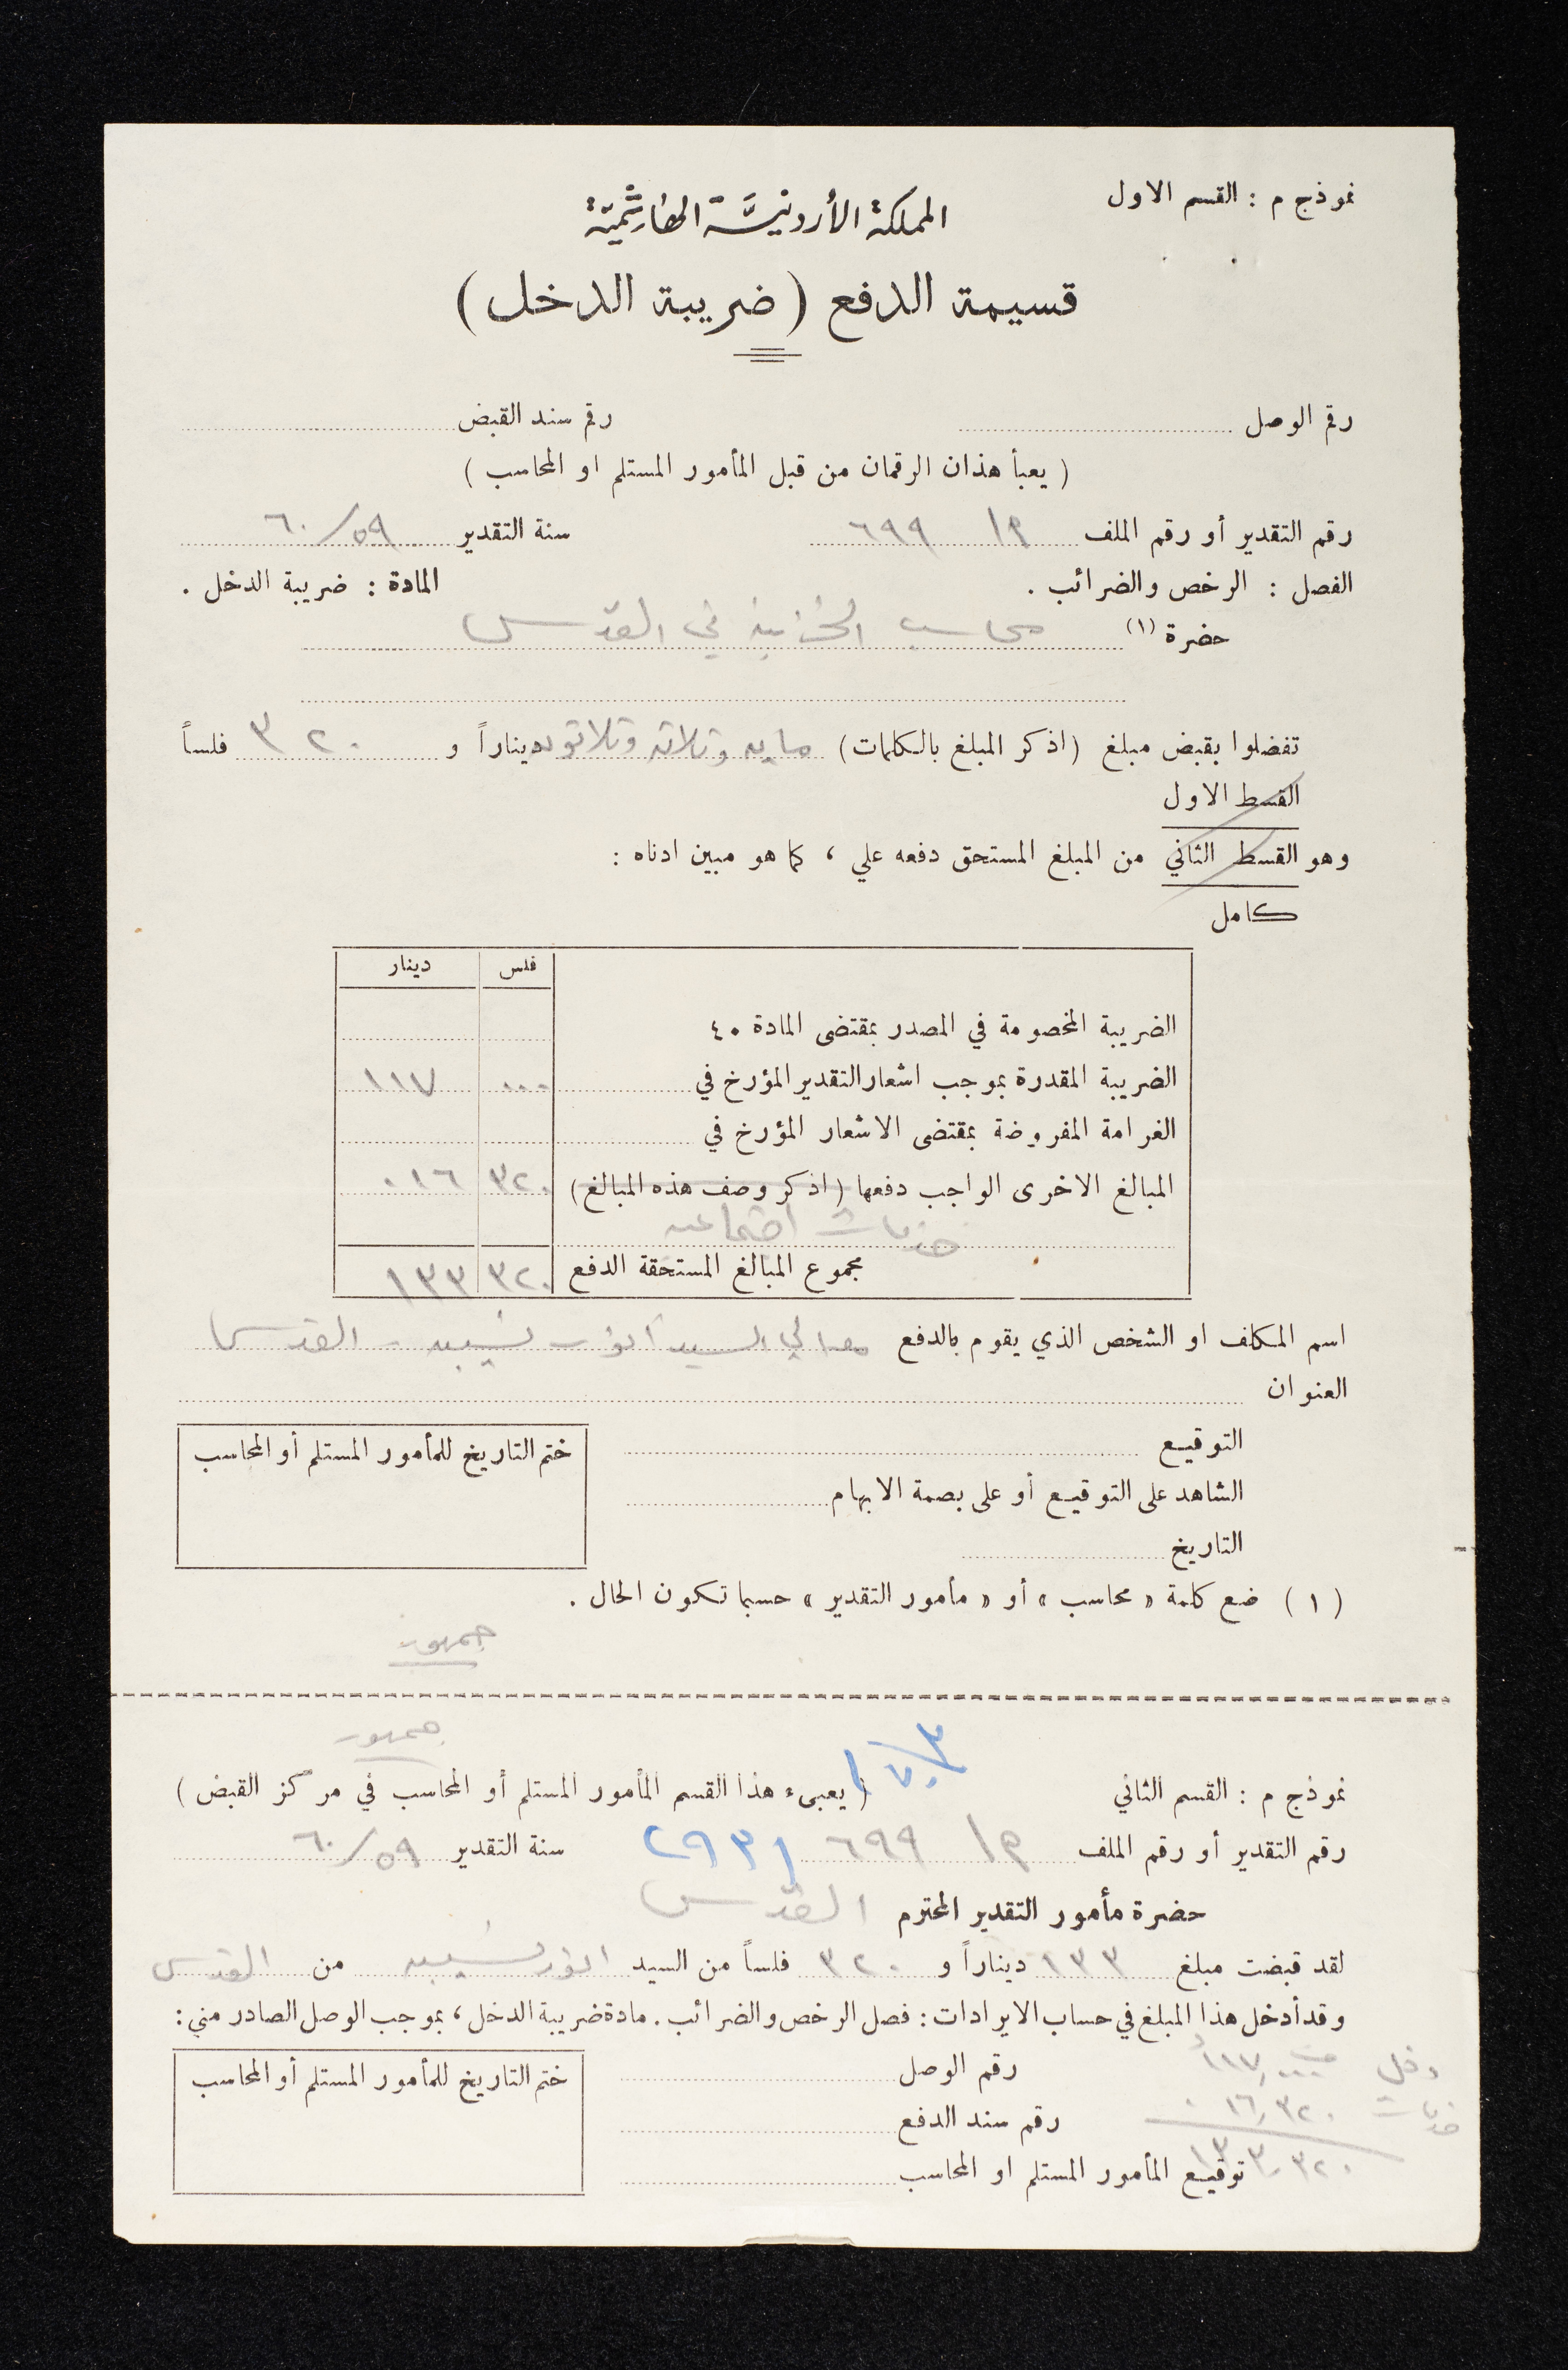 نموذج م : القسم الاول
المملكة الأردنية الهاشمية
قسيمة الدفع ( ضريبة الدخل )
رقم الوصل رقم سند القبض
( يعبأ هذان الرقمان من قبل المأمور المستلم او المحاسب )
رقم التقدير أو رقم الملف ٦٩٩ سنة التقدير ٦٠/٥٩
الفصل : الرخص والضرائب . المادة : ضريبة الدخل .
حضرة (١) محاسب الخزينة في القدس
تفضلوا بقبض مبلغ (اذكر المبلغ بالكلمات) مايه وثلاثه وثلاثون ديناراً و ٣٢٠ فلساً
القسط الاول
وهو القسط الثاني من المبلغ المستحق دفعه علي ، كما هو مبين ادناه :
كامل
فلس دينار
الضريبة المخصومة في المصدر بمقتضى المادة ٤٠
الضريبة المقدرة بموجب اشعار التقدير المؤرخ في ٠٠٠ ١١٧
الغرامة المفروضة بمقتضى الاشعار المؤرخ في
المبالغ الاخرى الواجب دفعها (اذكر وصف هذه المبالغ) ٣٢٠ ٠١٦
خدمات اجتماعيه
مجموع المبالغ المستحقة الدفع ٣٢٠ ١٣٣
اسم المكلف او الشخص الذي يقوم بالدفع معالي السيد أنور نسيبه - القدس
العنوان
التوقيع
ختم التاريخ للمأمور المستلم أو المحاسب
الشاهد على التوقيع أو على بصمة الابهام
التاريخ
( ١ ) ضع كلمة « محاسب » أو « مأمور التقدير » حسبما تكون الحال .
نموذج م : القسم الثاني ( يعبىء هذا القسم المأمور المستلم أو المحاسب في مركز القبض )
رقم التقدير أو رقم الملف ٦٩٩ سنة التقدير ٦٠/٥٩
حضرة مأمور التقدير المحترم القدس
لقد قبضت مبلغ ١٣٣ ديناراً و ٣٢٠ فلساً من السيد انور نسيبه من القدس
وقد أدخل هذا المبلغ في حساب الايرادات : فصل الرخص والضرائب . مادة ضريبة الدخل ، بموجب الوصل الصادر مني :
دخل ١١٧,٠٠٠
رقم الوصل
ختم التاريخ للمأمور المستلم أو المحاسب
خدمات ٠١٦,٣٢٠
رقم سند الدفع
١٣٣,٣٢٠
توقيع المأمور المستلم او المحاسب